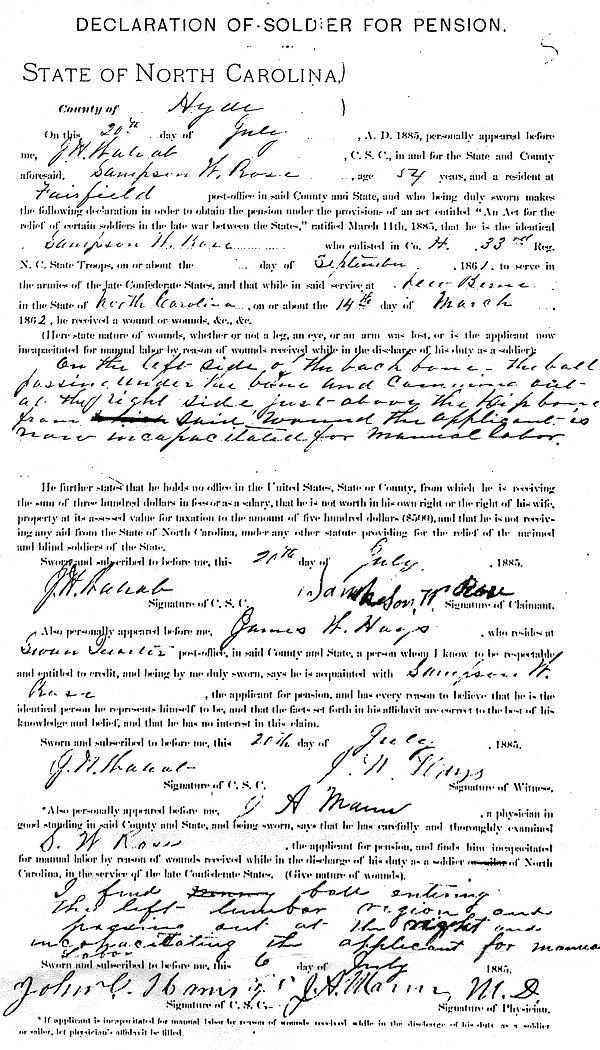 DECLARATION OF SOLDIER FOR PENSION.
STATE OF NORTH CAROLINA,)
County of Hyde )
On this 20th day of July , A. D. 1885, personally appeared before
me, J. H. Wahab , C. S. C., in and for the State and County
aforesaid, Sampson W. Rose , age 54 years, and a resident at
Fairfield post-office in said County and State, and who being duly sworn makes
the following declaration in order to obtain the pension under the provisions of an act entitled "An Act for the
relief of certain soldiers in the late war between the States," ratified March 11th, 1885, that he is the identical
Sampson W. Rose who enlisted in Co. H. 33rd Reg.
N. C. State Troops, on or about the day of September , 1861, to serve in
the armies of the late Confederate States, and that while in said service at New Berne
in the State of North Carolina , on or about the 14th day of March
1862, he received a wound or wounds, &c., &c.
(Here state nature of wounds, whether or not a leg, an eye, or an arm was lost, or is the applicant now
incapacitated for manual labor by reason of wounds received while in the discharge of his duty as a soldier):
On the left side of the back bone. The ball
passing under the bone and comming out
at the right side just above the Hip bone
from said wound the applicant is
now incapacitated for manual labor.
He further states that he holds no office in the United States, State or County, from which he is receiving
the sum of three hundred dollars in fees or as a salary, that he is not worth in his own right or the right of his wife,
property at its assessed value for taxation to the amount of five hundred dollars ($500), and that he is not receiv-
ing any aid from the State of North Carolina, under any other statute providing for the relief of the maimed
and blind soldiers of the State.
Sworn and subscribed to before me, this 20th day of July , 1885.
J. H. Wahab Sampson W Rose
Signature of C. S. C. Signature of Claimant.
Also personally appeared before me, James W. Hays , who resides at
Swan Quarter post-office, in said County and State, a person whom I know to be respectable
and entitled to credit, and being by me duly sworn, says he is acquainted with Sampson W.
Rose , the applicant for pension, and has every reason to believe that he is the
identical person he represents himself to be, and that the facts set forth in his affidavit are correct to the best of his
knowledge and belief, and that he has no interest in this claim.
Sworn and subscribed to before me, this 20th day of July , 1885.
J. H. Wahab J. W. Hays
Signature of C. S. C. Signature of Witness.
*Also personally appeared before me, J A Mann , a physician in
good standing in said County and State, and being sworn, says that he has carefully and thoroughly examined
S. W Rose , the applicant for pension, and finds him incapacitated
for manual labor by reason of wounds received while in the discharge of his duty as a soldier or sailor of North
Carolina, in the service of the late Confederate States. (Give nature of wounds).
I find ball entering
the left lumbar region and
passing out at the right and
incapacitating the applicant for manual
Labor
Sworn and subscribed to before me, this 6 day of July 1885.
J. A. Mann, M. D.
Signature of C. S. C. Signature of Physician.
*If applicant is incapacitated for manual labor by reason of wounds received while in the discharge of his duty as a soldier
or sailor, let physician's affidavit be filled.